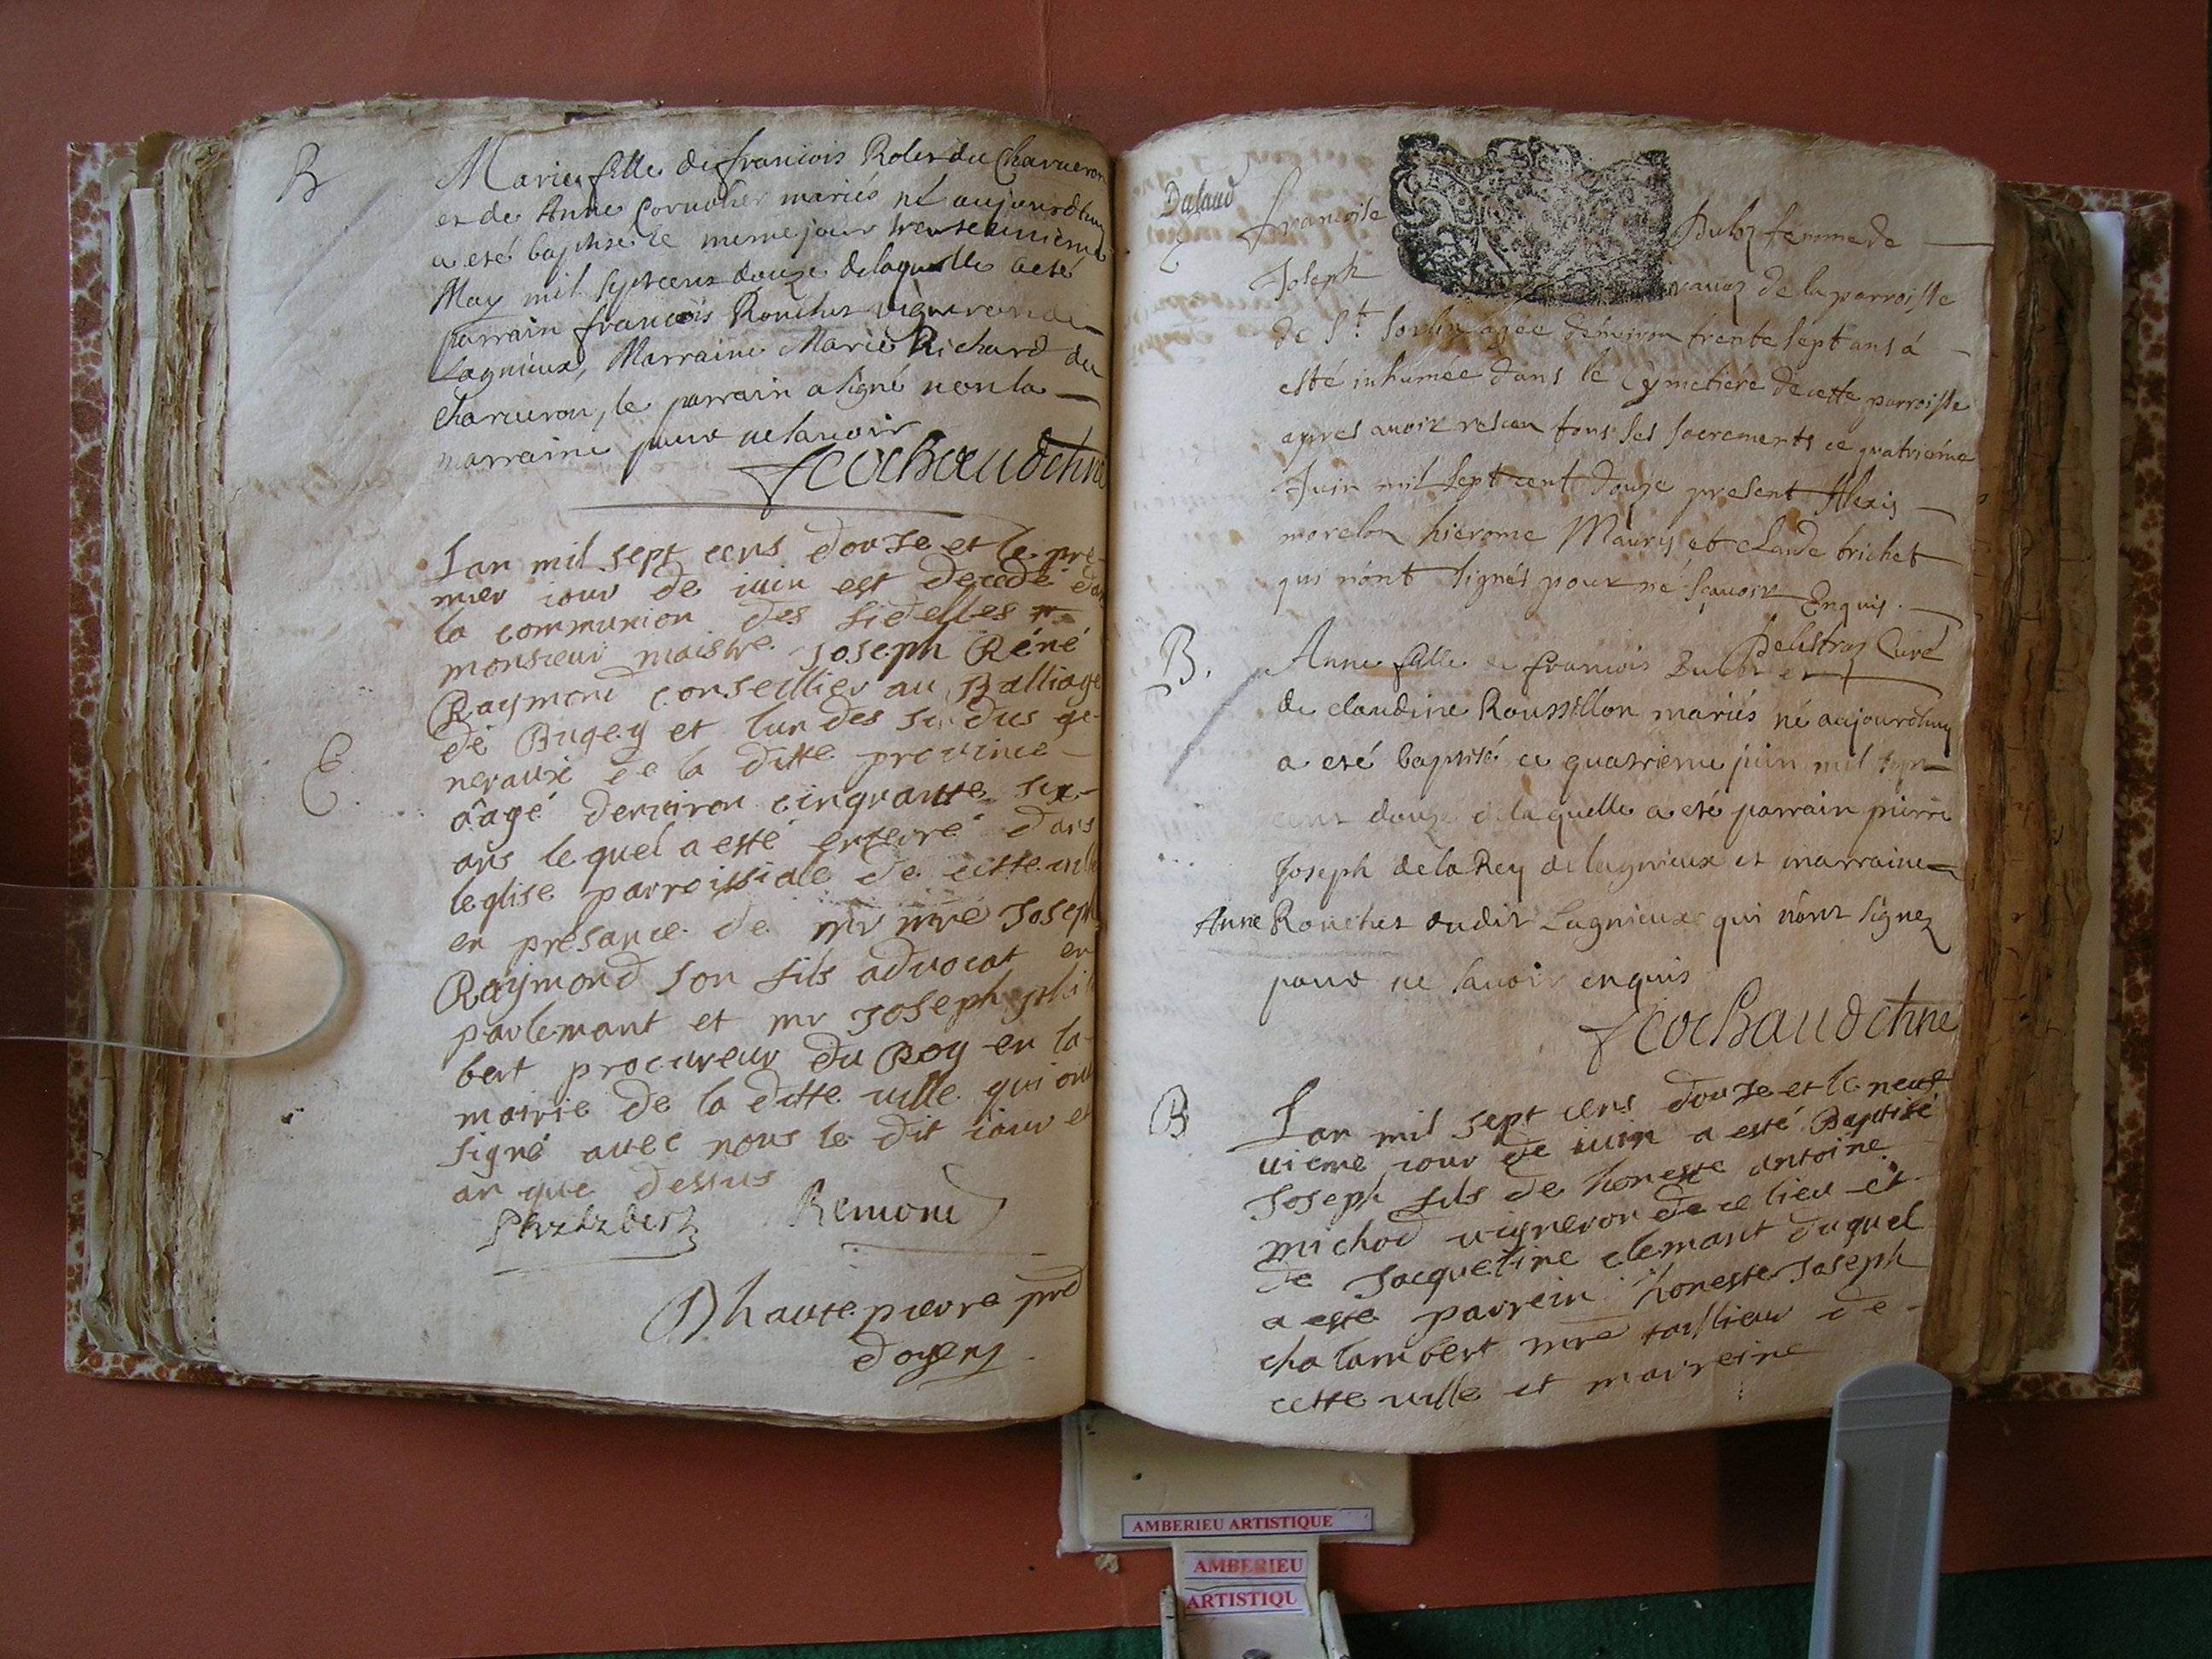 B
Marie fille de francois Rolet du Charueron
et de Anne Cornolier mariés né aujourdhuy
a eté baptisé le meme jour trente unieme
May mil sept cens douze de laquelle a eté
parrain francois Ronchet vigneron de
Lagnieux, Marraine Marie Richard du
charueron, le parrain a signé non la
marraine pour ne scavoir
Cochaud chne
Lan mil sept cens douze et le pre-
mier iour de iuin est decedé dans
la communion des fidelles
monsieur maistre Joseph Réné
Raymond conseillier au Balliage
de Bugey et lun des sindics ge-
neraux de la ditte province
E
âagé denviron cinquante six
ans le quel a esté enterré dans
leglise parroissiale de cette ville
en presance de mr mre Joseph
Raymond son fils advocat en
parlemant et mr Joseph phili
bert procureur du Roy en la
mairie de la ditte ville qui ont
signé avec nous le dit iour et
an que dessus
Philibert Remond
Dhautepierre pre
doyen
Dalaud
francoise Duby femme de
Joseph de la parroisse
de St. Sorlin agée d'environ trente sept ans á
esté inhumée dans le cymetiére de cette parroisse
apres avoir resceu tous ses sacrements ce quatriéme
Juin mil sept cent douze present Alexis
morelon hierome Maury et claude trichet
qui n'ont signés pour né sçavoir Enquis.
Delestraz Curé
B.
Anne fille de francois et
de claudine Roussillon mariés né aujourdhuy
a eté baptisé ce quatrieme juin mil sept
cens douze de laquelle a eté parrain pierre
Joseph de la Rey de lagnieux et marraine
Anne Ronchet dudit Lagnieux qui n'ont signez
pour ne scavoir enquis
Cochaud chne
B
Lan mil sept cens douze et le neuf
uieme iour de iuin a esté Baptisé
Joseph fils de honeste antoine
michod uigneron de ce lieu et
de Jacqueline clemant duquel
a esté parrein honeste Joseph
chalambert mre taillieur de
cette uille et marreine
AMBERIEU ARTISTIQUE
AMBERIEU
ARTISTIQU